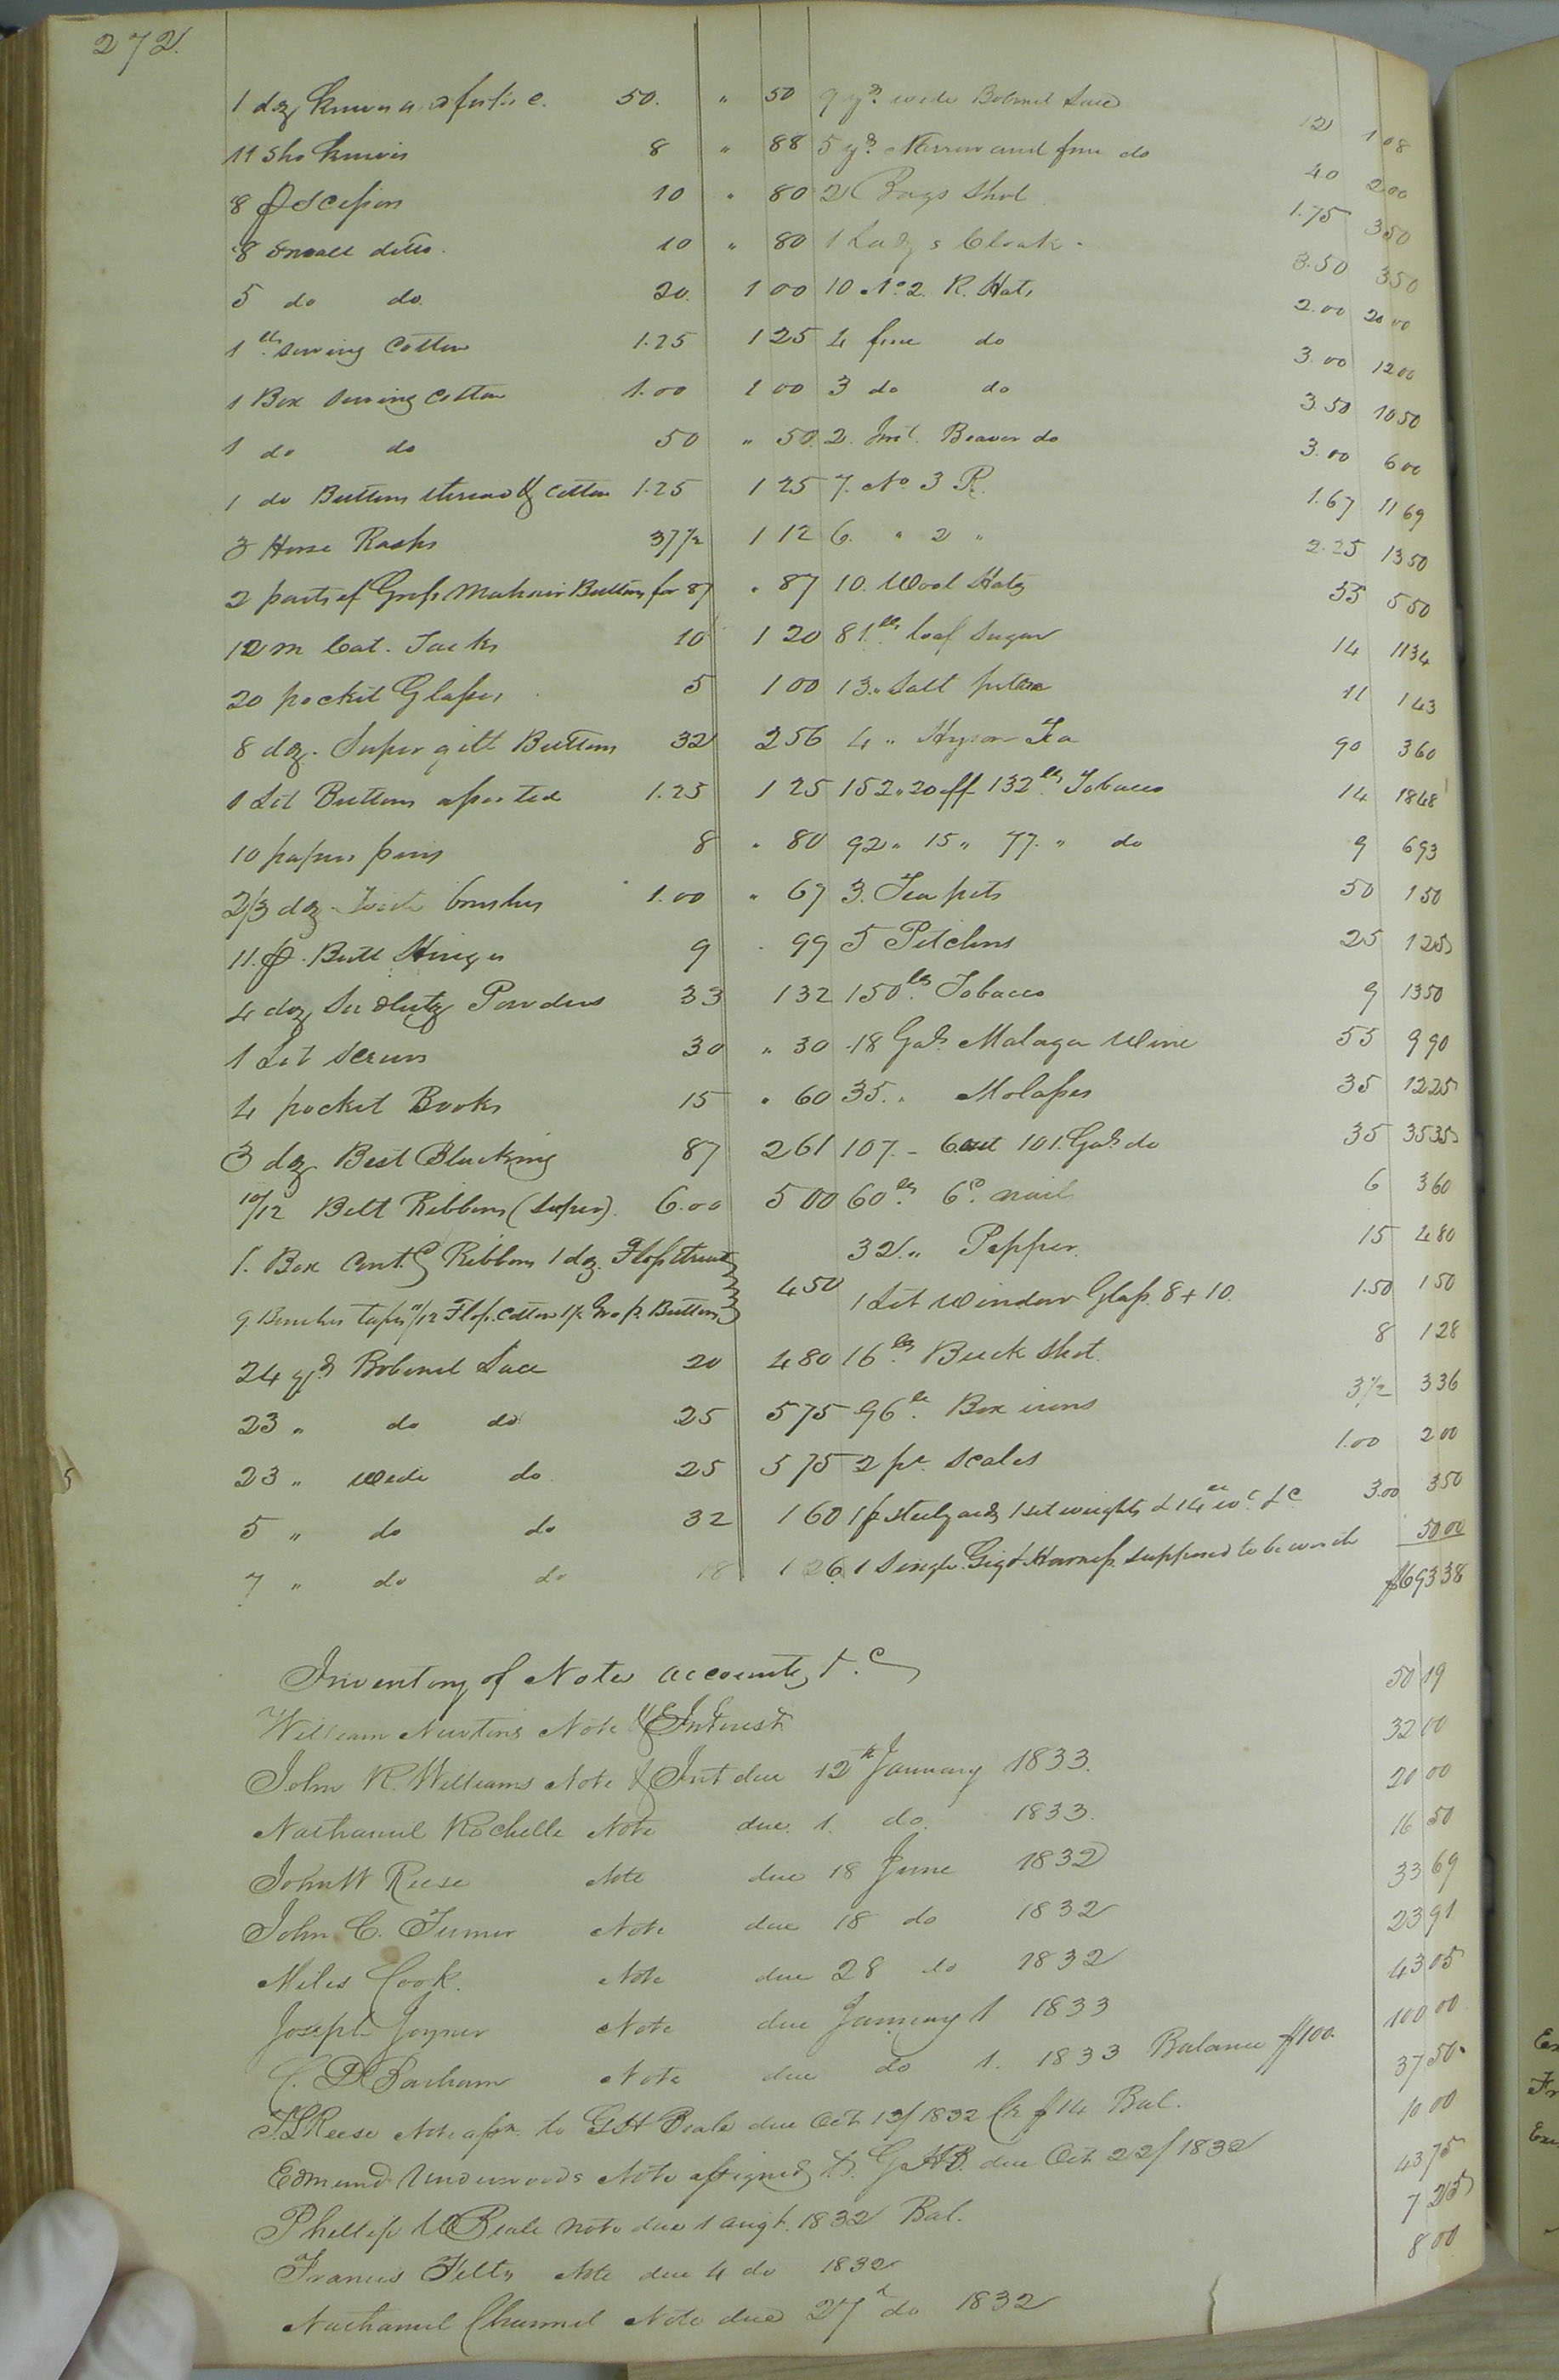 272.
1 doz knives & forks 50. " 50
11 Shoe knives 8 " 88
8 p Scissors 10 " 80
8 Small ditto. 10 " 80
5 do do. 20. 1 00
1 lb. Sewing Cotton 1.25 1 25
1 Box Sewing Cotton 1.00 1 00
1 do do 50 " 50
1 do Buttons thread & Cotton 1.25 1 25
3 Horse Rasps 37½ 1 12
2 parts of Gross Mohair Buttons for 87 " 87
12 m Cat. Tacks 10 1 20
20 pocket Glasses 5 1 00
8 doz. Super gilt Buttons 32 2 56
1 Lot Buttons assorted 1.25 1 25
10 papers pins 8 " 80
2/3 doz Tooth brushes 1.00 " 67
11. p. Butt Hinges 9 99
4 doz Seidlitz Powders 33 1 32
1 Lot Screws 30 " 30
4 pocket Books 15 " 60
3 doz Best Blacking 87 2 61
10/12 Belt Ribbons (Super). 6.00 5 00
1. Box Cont.g Ribbons 1 doz. Floss thread
9 Bunches tapes /12 Floss. Cotton Gross Buttons 4 50
24 yds Bobinet Lace 20 4 80
23 " do do 25 5 75
23 " Wide do 25 5 75
5 " do do 32 1 60
7 " do do 18 1 26
9 yds. wide Bobinet Lace 12 1 08
5 yds. Narrow and fine do 40 2 00
2 Bags Shot 1.75 3 50
1 Ladys Cloak 3.50 3 50
10 No. 2. R. Hats 2.00 20 00
4 fine do 3.00 12 00
3 do do 3.50 10 50
2. Imt. Beaver do 3.00 6 00
7. No. 3 R. 1.67 11 69
6. " 2 " 2.25 13 50
10. Wool Hats 55 5 50
81. lbs. loaf Sugar 14 11 34
13 " Salt petre 11 1 43
4 " Hyson Tea 90 3 60
152 " 20 off 132 lbs. Tobacco 14 18 48
92 " 15 " 77. " do 9 6 93
3. Tea pots 50 1 50
5 Pitchers 25 1 25
150 lbs. Tobacco 9 13 50
18 Gals. Malaga Wine 55 9 90
35. " Molasses 35 12 25
107. - 6 out 101. Gals do 35 35 35
60 lbs. 6d. nail 6 3 60
32. " Pepper. 15 4 80
1 Lot Window Glass. 8 + 10. 1.50 1 50
16 lbs. Buck Shot. 8 1 28
96 lbs. Box irons 3½ 3 36
2 pr. Scales 1.00 2 00
1 p Steelyards 1 set weights & 14 lb wt. &c 3.00 3 50
1 Single Gig & Harness supposed to be worth 50 00
$693 38
Inventory of Notes accounts &.c
William Newtons Note & Interest 50 19
John R. Williams Note & Int due 12th January 1833. 32 00
Nathaniel Rochelle Note due. 1. do. 1833. 20 00
John W Reese Note due 18 June 1832 16 50
John C. Turner Note due 18 do 1832 33 69
Miles Cook. Note due 28 do 1832 23 91
Joseph Joyner Note due January 1 1833 43 05
C. D. Barham Note due do 1. 1833 Balance $100. 100 00
Reese Note assn. to G H Beale due Oct 13/1832 Cr $14 Bal. 37 50.
Edmund Underwoods Note assigned to. G. H. B. due Oct 22/1832 10 00
Phillip W Beale note due 1 augt. 1832 Bal. 43 75
Francis Felts Note due 4 do 1832 7 25
Nathaniel Channel Note due 27th do 1832 8 00